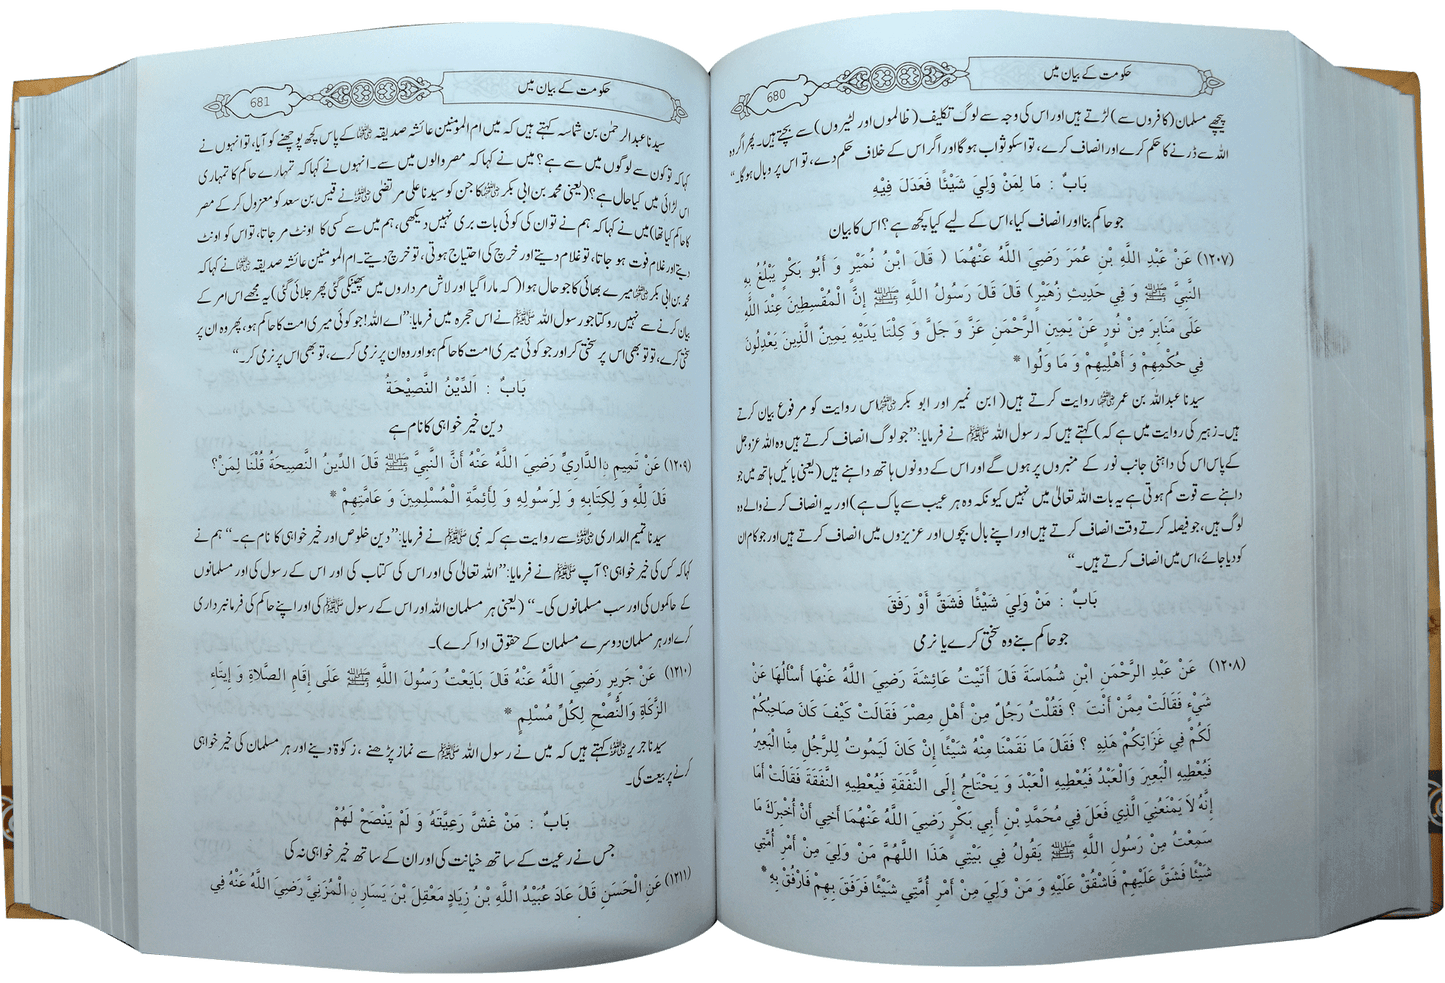 حکومت کے بیان میں
680
پیچھے مسلمان (کافروں سے) لڑتے ہیں اور اس کی وجہ سے لوگ تکلیف (ظالموں اور لٹیروں) سے بچتے ہیں۔ پھر اگر وہ
اللہ سے ڈرنے کا حکم کرے اور انصاف کرے، تو اسکو ثواب ہو گا اور اگر اس کے خلاف حکم دے، تو اس پر وبال ہو گا۔“
بَابٌ : مَا لِمَنْ وَلِيَ شَيْئًا فَعَدَلَ فِيْهِ
جو حاکم بنا اور انصاف کیا، اس کے لیے کیا کچھ ہے؟ اس کا بیان
(۱۲۰۷) عَنْ عَبْدِ اللَّهِ بْنِ عُمَرَ رَضِيَ اللَّهُ عَنْهُمَا ( قَالَ ابْنُ نُمَيْرٍ وَ أَبُو بَكْرٍ يَبْلُغُ بِهِ
النَّبِيَّ ﷺ وَ فِي حَدِيثِ زُهَيْرٍ) قَالَ قَالَ رَسُولُ اللَّهِ ﷺ إِنَّ الْمُقْسِطِينَ عِنْدَ اللَّهِ
عَلَى مَنَابِرَ مِنْ نُورٍ عَنْ يَمِينِ الرَّحْمَنِ عَزَّ وَ جَلَّ وَ كِلْتَا يَدَيْهِ يَمِينٌ الَّذِينَ يَعْدِلُونَ
فِي حُكْمِهِمْ وَ أَهْلِيهِمْ وَ مَا وَلُوا *
سیدنا عبداللہ بن عمر ؓ روایت کرتے ہیں (ابن نمیر اور ابو بکر ؓ اس روایت کو مرفوع بیان کرتے
ہیں۔ زہیر کی روایت میں ہے کہ) کہتے ہیں کہ رسول اللہ ﷺ نے فرمایا: ”جو لوگ انصاف کرتے ہیں وہ اللہ عزوجل
کے پاس اس کی داہنی جانب نور کے منبروں پر ہوں گے اور اس کے دونوں ہاتھ داہنے ہیں (یعنی بائیں ہاتھ میں جو
داہنے سے قوت کم ہوتی ہے یہ بات اللہ تعالیٰ میں نہیں کیونکہ وہ ہر عیب سے پاک ہے) اور یہ انصاف کرنے والے وہ
لوگ ہیں، جو فیصلہ کرتے وقت انصاف کرتے ہیں اور اپنے بال بچوں اور عزیزوں میں انصاف کرتے ہیں اور جو کام ان
کو دیا جائے، اس میں انصاف کرتے ہیں۔“
بَابٌ : مَنْ وَلِيَ شَيْئًا فَشَقَّ أَوْ رَفَقَ
جو حاکم بنے وہ سختی کرے یا نرمی
(۱۲۰۸) عَنْ عَبْدِ الرَّحْمَنِ ابْنِ شُمَاسَةَ قَالَ أَتَيْتُ عَائِشَةَ رَضِيَ اللَّهُ عَنْهَا أَسْأَلُهَا عَنْ
شَيْءٍ فَقَالَتْ مِمَّنْ أَنْتَ ؟ فَقُلْتُ رَجُلٌ مِنْ أَهْلِ مِصْرَ فَقَالَتْ كَيْفَ كَانَ صَاحِبُكُمْ
لَكُمْ فِي غَزَاتِكُمْ هَذِهِ ؟ فَقَالَ مَا نَقَمْنَا مِنْهُ شَيْئًا إِنْ كَانَ لَيَمُوتُ لِلرَّجُلِ مِنَّا الْبَعِيرُ
فَيُعْطِيهِ الْبَعِيرَ وَالْعَبْدُ فَيُعْطِيهِ الْعَبْدَ وَ يَحْتَاجُ إِلَى النَّفَقَةِ فَيُعْطِيهِ النَّفَقَةَ فَقَالَتْ أَمَا
إِنَّهُ لاَ يَمْنَعُنِي الَّذِي فَعَلَ فِي مُحَمَّدِ بْنِ أَبِي بَكْرٍ رَضِيَ اللَّهُ عَنْهُمَا أَخِي أَنْ أُخْبِرَكَ مَا
سَمِعْتُ مِنْ رَسُولِ اللَّهِ ﷺ يَقُولُ فِي بَيْتِي هَذَا اللَّهُمَّ مَنْ وَلِيَ مِنْ أَمْرِ أُمَّتِي
شَيْئًا فَشَقَّ عَلَيْهِمْ فَاشْقُقْ عَلَيْهِ وَ مَنْ وَلِيَ مِنْ أَمْرِ أُمَّتِي شَيْئًا فَرَفَقَ بِهِمْ فَارْفُقْ بِهِ *
حکومت کے بیان میں
681
سیدنا عبدالرحمٰن بن شماسہ کہتے ہیں کہ میں ام المومنین عائشہ صدیقہ ؓ کے پاس کچھ پوچھنے کو آیا، تو انہوں نے
کہا کہ تو کون سے لوگوں میں سے ہے؟ میں نے کہا کہ مصر والوں میں سے۔ انہوں نے کہا کہ تمہارے حاکم کا تمہاری
اس لڑائی میں کیا حال ہے؟ (یعنی محمد بن ابی بکر ؓ کا جن کو سیدنا علی مرتضیٰ ؓ نے قیس بن سعد کو معزول کر کے مصر
کا حاکم کیا تھا) میں نے کہا کہ ہم نے تو ان کی کوئی بات بری نہیں دیکھی، ہم میں سے کسی کا اونٹ مر جاتا، تو اس کو اونٹ
دیتے اور غلام فوت ہو جاتا، تو غلام دیتے اور خرچ کی احتیاج ہوتی، تو خرچ دیتے۔ ام المومنین عائشہ صدیقہ ؓ نے کہا کہ
محمد بن ابی بکر ؓ میرے بھائی کا جو حال ہوا (کہ مارا گیا اور لاش مرداروں میں پھینکی گئی پھر جلائی گئی) یہ مجھے اس امر کے
بیان کرنے سے نہیں روکتا جو رسول اللہ ﷺ نے اس حجرہ میں فرمایا: ”اے اللہ! جو کوئی میری امت کا حاکم ہو، پھر وہ ان پر
سختی کرے، تو تو بھی اس پر سختی کر اور جو کوئی میری امت کا حاکم ہو اور وہ ان پر نرمی کرے، تو بھی اس پر نرمی کر۔“
بَابٌ : اَلدِّيْنُ النَّصِيْحَةُ
دین خیر خواہی کا نام ہے
(۱۲۰۹) عَنْ تَمِيمٍ نِالدَّارِيِّ رَضِيَ اللَّهُ عَنْهُ أَنَّ النَّبِيَّ ﷺ قَالَ الدِّينُ النَّصِيحَةُ قُلْنَا لِمَنْ؟
قَالَ لِلَّهِ وَ لِكِتَابِهِ وَ لِرَسُولِهِ وَ لِأَئِمَّةِ الْمُسْلِمِينَ وَ عَامَّتِهِمْ *
سیدنا تمیم الداری ؓ سے روایت ہے کہ نبی ﷺ نے فرمایا: ”دین خلوص اور خیر خواہی کا نام ہے۔“ ہم نے
کہا کہ کس کی خیر خواہی؟ آپ ﷺ نے فرمایا: ”اللہ تعالیٰ کی اور اس کی کتاب کی اور اس کے رسول کی اور مسلمانوں
کے حاکموں کی اور سب مسلمانوں کی۔“ (یعنی ہر مسلمان اللہ اور اس کے رسول ﷺ کی اور اپنے حاکم کی فرمانبرداری
کرے اور ہر مسلمان دوسرے مسلمان کے حقوق ادا کرے)۔
(۱۲۱۰) عَنْ جَرِيرٍ رَضِيَ اللَّهُ عَنْهُ قَالَ بَايَعْتُ رَسُولَ اللَّهِ ﷺ عَلَى إِقَامِ الصَّلاَةِ وَ إِيتَاءِ
الزَّكَاةِ وَالنُّصْحِ لِكُلِّ مُسْلِمٍ *
سیدنا جریر ؓ کہتے ہیں کہ میں نے رسول اللہ ﷺ سے نماز پڑھنے، زکوٰۃ دینے اور ہر مسلمان کی خیر خواہی
کرنے پر بیعت کی۔
بَابٌ : مَنْ غَشَّ رَعِيَّتَهُ وَ لَمْ يَنْصَحْ لَهُمْ
جس نے رعیت کے ساتھ خیانت کی اور ان کے ساتھ خیر خواہی نہ کی
(۱۲۱۱) عَنِ الْحَسَنِ قَالَ عَادَ عُبَيْدُ اللَّهِ بْنُ زِيَادٍ مَعْقِلَ بْنَ يَسَارٍ نِ الْمُزَنِيَّ رَضِيَ اللَّهُ عَنْهُ فِي